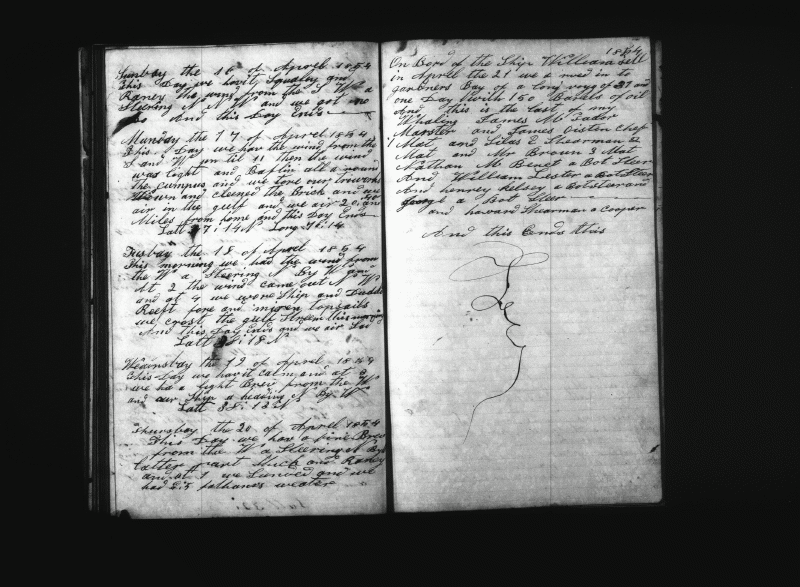 Sunday the 16 of Aporel 1854
This Day we havit Squaley and
Raney the wind from the S W a
Stearing N N W and we got no
So And this Day Ends
Munday the 17 of Aporel 1854
This Day we hav the wind from the
S and W un til 11 then the wind
was light and Baflin all around
the cumpus and we tore our triworks
Down and cleened the Brick and we
air in the gulf and we air 240
Miles from home and this Day Ends
Latt 37:14 N Long 71:14
Tusday the 18 of Aporel 1854
This morning we had the wind from
the W a Stearing N By W and
At 2 the wind came out N W
and at 4 we wore Ship and Duble
Reeft fore and mizen topsails
we crost the gulf Streem this
And this Day Ends and we air
Latt 18 N
Weainsday the 19 of April 1854
this day we havit calm and at
we had a light Brese from the W
and our Ship a heading N By W
Latt 38:12 N
Thursday the 20 of April 1854
This Day we hav a fine Brese
from the W a Stearen N By
latter part thick and Raney
and at 1 we Sounded and we
had 25 fathoms weater
1854
On Bord of the Ship William tell
in Aprell the 21 we a rived in to
gardners Bay of a long voyg of 27 and
one Day With 150 Barels of oil
And this is the last of my
Whaling James M Tador
Marster and James Oisten Chef
1 Mat and Silas E Shearman 2
Mat and Mr Brown 3 Mat
Nathan M Benet a Bot Steer
And William Lester a Bot Steer
And henrey kelsey a Botsteer and
george a Bot Steer
and howard Shearman a Cooper
And this Ends this